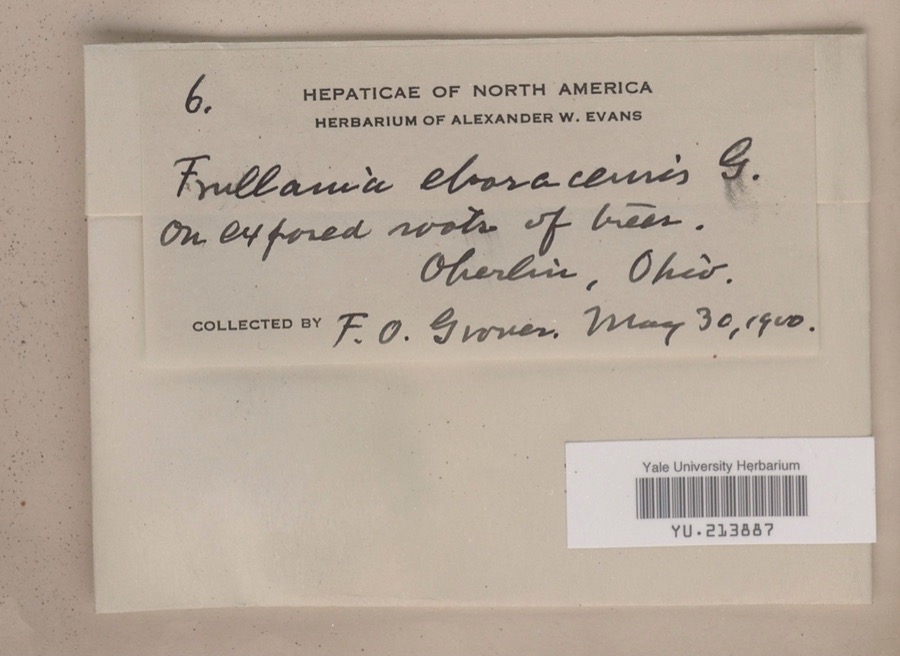 6.
HEPATICAE OF NORTH AMERICA
HERBARIUM OF ALEXANDER W. EVANS
Frullania eboracensis G.
On exposed roots of trees.
Oberlin, Ohio.
COLLECTED BY F. O. Grover. May 30, 1900.
Yale University Herbarium
YU.213887